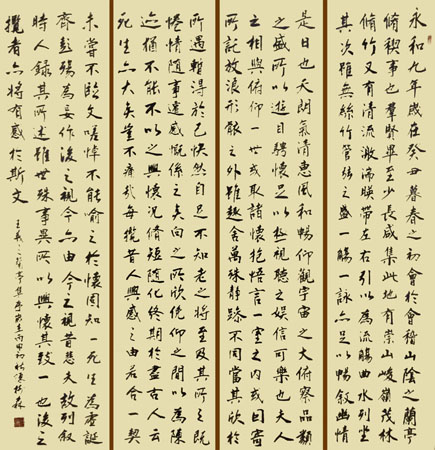 永和九年歲在癸丑暮春之初會於會稽山陰之蘭亭
脩稧事也羣賢畢至少長咸集此地有崇山峻嶺茂林
脩竹又有清流激湍暎帶左右引以為流觴曲水列坐
其次雖無絲竹管弦之盛一觴一詠亦足以暢敘幽情
是日也天朗氣清惠風和暢仰觀宇宙之大俯察品類
之盛所以遊目騁懷足以極視聽之娛信可樂也夫人
之相與俯仰一世或取諸懷抱悟言一室之内或因寄
所託放浪形骸之外雖趣舍萬殊靜躁不同當其欣於
所遇暫得於己怏然自足不知老之將至及其所之既
惓情隨事遷感慨係之矣向之所欣俛仰之間以為陳
迹猶不能不以之興懷況脩短隨化終期於盡古人云
死生亦大矣豈不痛哉每攬昔人興感之由若合一契
未嘗不臨文嗟悼不能喻之於懷固知一死生為虛誕
齊彭殤為妄作後之視今亦由今之視昔悲夫故列敘
時人錄其所述雖世殊事異所以興懷其致一也後之
攬者亦將有感於斯文
王羲之蘭亭集序歲在丙申初秋